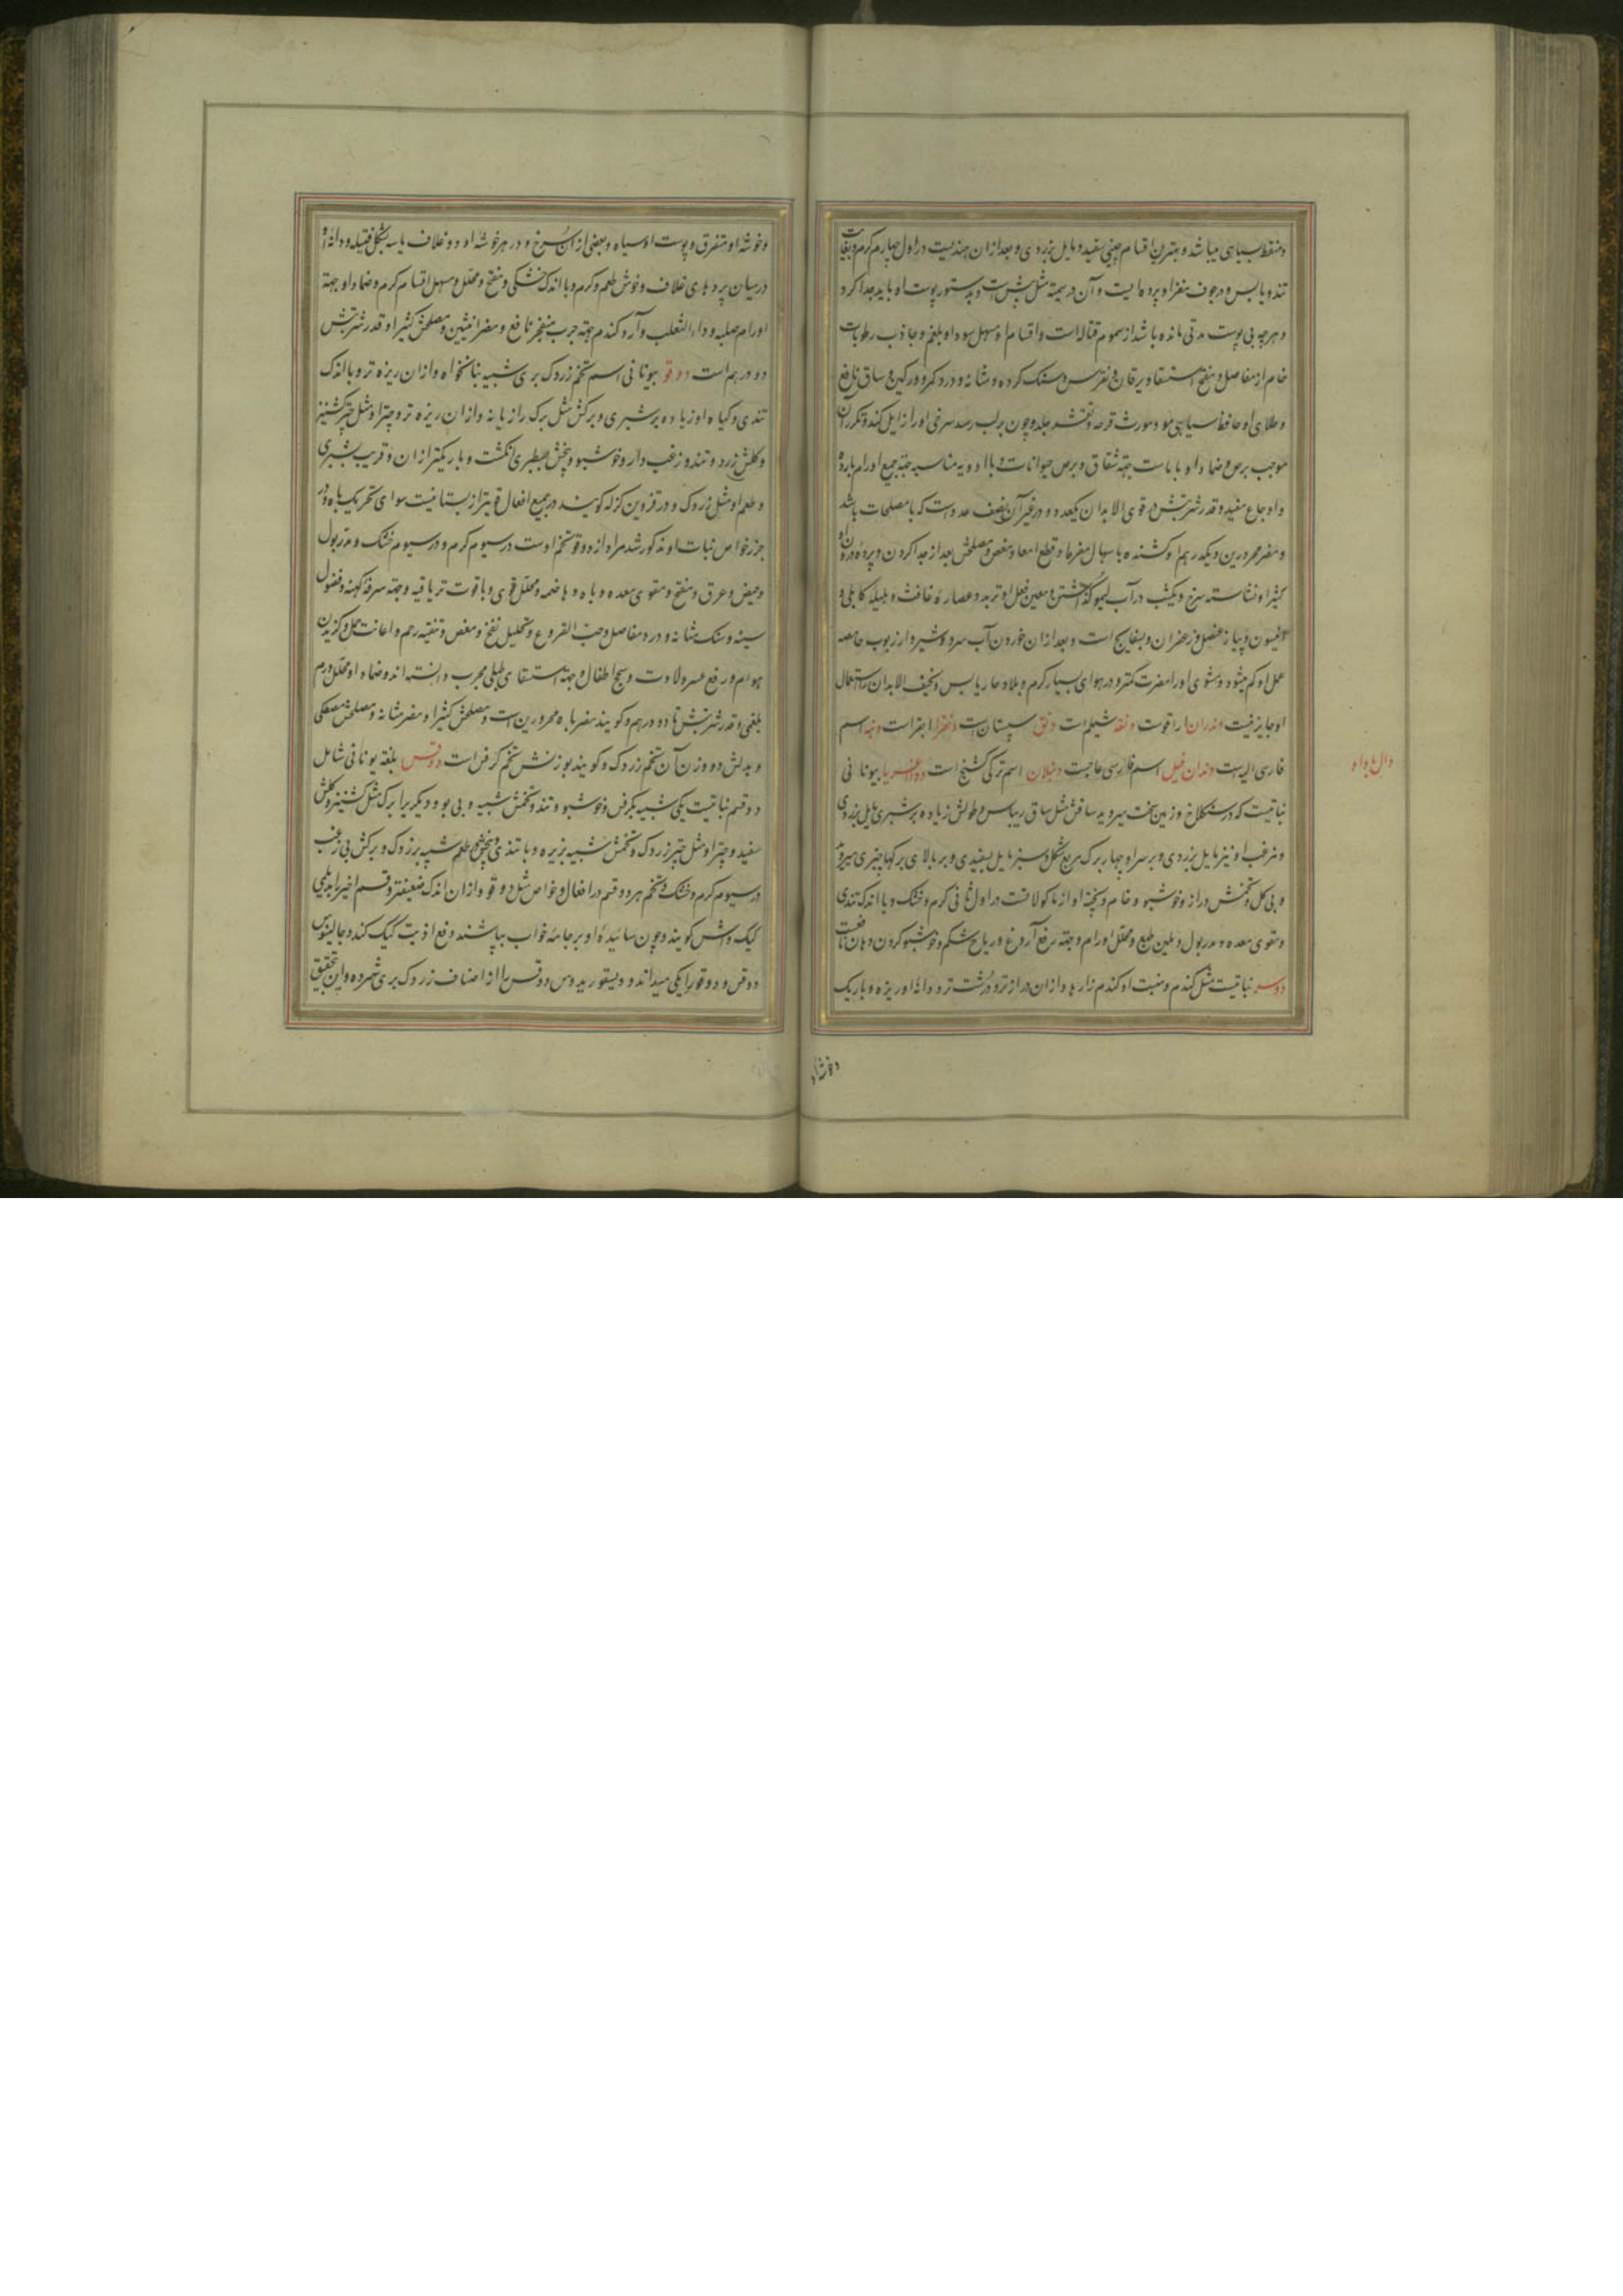 ومنقط بسیاهی میباشد و بهترین اقسام چینی سفید و مایل بزردی و بعد ازان هندیست در اول چهارم گرم و بغایت
تند و یابس و در جوف مغز او پرده ایست و آن در سمیت مثل بیش است و بدستور پوست او باید جدا کرد
و هرچه بی پوست مدتی مانده باشد از سموم قتاله است و اقسام او مسهل سودا و بلغم و جاذب رطوبات
خام از مفاصل و مفتح استسقا و یرقان و نقرس و سنک کرده و مثانه و درد کمر و ورکین و ساق نافع
و طلای او حافظ سیاهی مو و مورث قرحه و تقشر جلد و چون بر لب رسد سرخی او را زایل کند و تکرار آن
موجب برص و ضماد او با باست جهة شقاق و برص حیوانات و با ادویه مناسبه جهة جمیع اورام بارده
و اوجاع مفید و قدر شربتش در قوی الابدان یکعدد و در غیر آن نصف عدد است که با مصلحات باشد
و مضر محرورین و یکدرهم او کشنده باسهال مفرط و قطع امعا و مغص و مصلحش بعد از جدا کردن و پرده درون او
کثیرا و نشاسته سرخ و یکشب در آب لیمو گذاشتن و معین فعل او تربد و عصاره غافث و هلیله کابلی و
انیسون و پیاز عنصل و زعفران و بسفایج است و بعد ازان خوردن آب سرد و شیر و از ربوب حامضه
عمل او کم میشود و مشوی او را مضرت کمتر و در هوای بسیار گرم و بلاد حار یابس و نحیف الابدان را استعمال
او جایز نیست دندران ارا قوست دنقه شیلم است دنق سپستان است دنغزا ابقر است دنبه اسم
فارسی الیه است دندان فیل اسم فارسی عاجست دنبلان اسم ترکی کشنج است دواغریا بیونانی
نباتیست که در سنکلاخ و زمین سخت میروید ساقش مثل ساق ریباس و طولش زیاده بر شبری مایل بزردی
و مزغب او نیز مایل بزردی و بر سر او چهار برک مربع شکل و سبز مایل بسفیدی و بر بالای برکها چیزی میروید
و بی کل و تخمش دراز و خوشبو و خام و پخته او از ماکولاتست در اول ثانی گرم و خشک و با اندک تندی
و مقوی معده و مدر بول و ملین طبع و محلل اورام و جهة رفع آروغ و ریاح شکم و خوشبو کردن دهان نافعست
دوسر نباتیست مثل گندم و منبت او گندم زارها و ازان دراز تر و درشت تر و دانه او ریزه و باریک
دال با واو
و خوشه او
و خوشه او متفرق و پوست او سیاه و بعضی ازان سرخ و در هر خوشه او دو غلاف یا سه بشکل فتیله و دانه او
در میان پردهای غلاف و خوش طعم و گرم و با اندک خشکی و منضج و محلل و مسهل اقسام کرم و ضماد او جهة
اورام صلبه و داء الثعلب و آرد گندم جهة جرب منفجر نافع و مضر انثیین و مصلحش کثیرا و قدر شربتش
دو درهم است دوقو بیونانی اسم تخم زردک بری شبیه بنانخواه و ازان ریزه تر و با اندک
تندی و کیاه او زیاده بر شبری و برکش مثل برک رازیانه و ازان ریزه تر و چتر او مثل چتر کشنیز
و کلش زرد و تند و زغب دار و خوشبو و بیخش بسطبری انکشت و باریکتر ازان و قریب بشبری
و طعم او مثل زردک و در قزوین کزله کویند در جمیع افعال قویتر از بستانیست سوای تحریک باه و در
جزر خواص نبات او مذکور شد مراد از دوقو تخم اوست در سیوم گرم و در سیوم خشک و مدر بول
و حیض و عرق و مفتح و مقوی معده و باه و هاضمه و محلل قوی و با قوت تریاقیه و جهة سرفه کهنه و فضول
سینه و سنک مثانه و درد مفاصل و حب القروع و تحلیل نفخ و مغص و تنقیه رحم و اعانت حمل و گزیدن
هوام و رفع عسر ولادت و سحج اطفال و جهة استسقای طبلی مجرب دانسته اند و ضماد او محلل ورم
بلغمی و قدر شربتش تا دو درهم و کویند مضر باه محرورین است و مصلحش کثیرا و مضر مثانه و مصلحش مصطکی
و بدلش دو وزن آن تخم زردک و کویند بوزنش تخم کرفس است دوقس بلغة یونانی شامل
دو قسم نباتیست یکی شبیه بکرفس و خوشبو و تند و تخمش شبیه و بی بو و دیکر برا برک مثل کشنیز و کلش
سفید و چتر او مثل چتر زردک و تخمش شبیه بزیره و با تندی و بیخش طعم شبیه بزردک و برکش بی زغب
در سیوم گرم و خشک و تخم هر دو قسم در افعال و خواص مثل دوقو و ازان اندک ضعیفتر و قسم اخیر را بدیلمی
کیک واش کویند و چون سائیده او بر جامه خواب بپاشند دفع اذیت کیک کند و جالینوس
دوقس و دوقو را یکی میداند و دیسقوریدوس دوقس را از اصناف زردک بری شمرده و این تحقیق